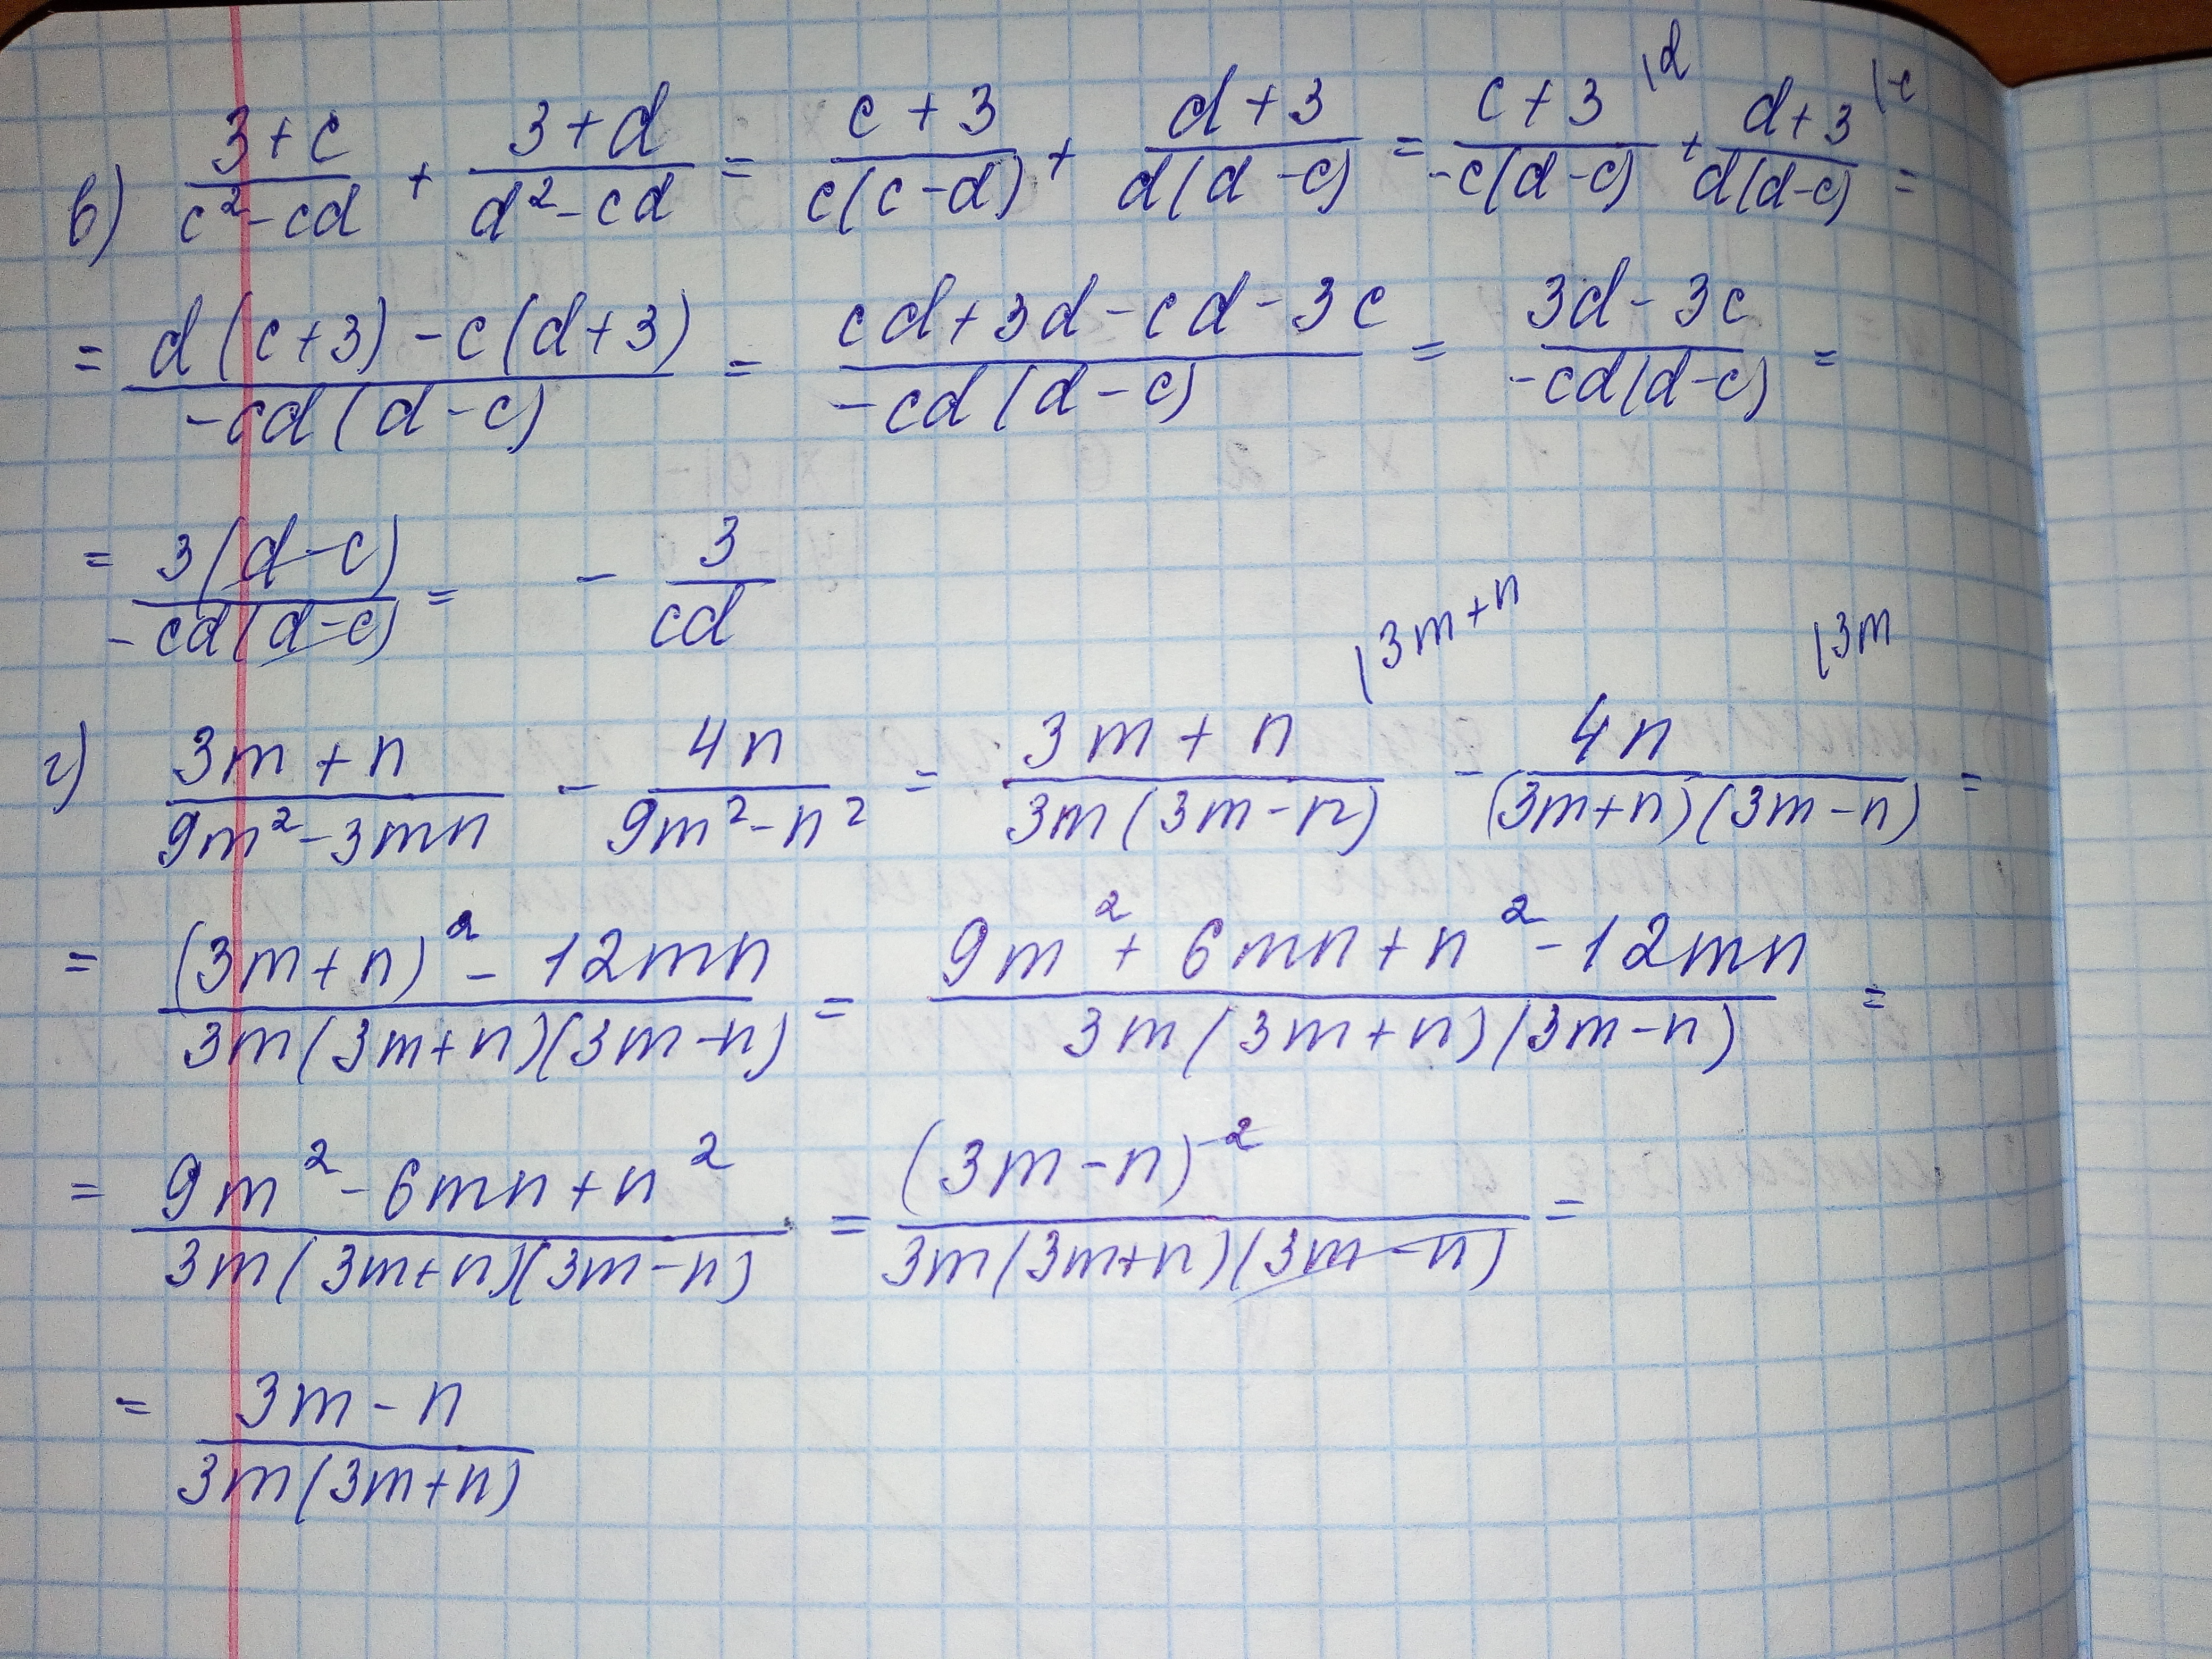 в) (3+c)/(c²-cd) + (3+d)/(d²-cd) = (c+3)/(c(c-d)) + (d+3)/(d(d-c)) = (c+3)\d/(-c(d-c)) + (d+3)\-c/(d(d-c)) =
= (d(c+3)-c(d+3))/(-cd(d-c)) = (cd+3d-cd-3c)/(-cd(d-c)) = (3d-3c)/(-cd(d-c)) =
= (3(d-c))/(-cd(d-c)) = - 3/(cd)
г) (3m+n)/(9m²-3mn) - (4n)/(9m²-n²) = (3m+n)\3m+n/(3m(3m-n)) - (4n)\3m/((3m+n)(3m-n)) =
= ((3m+n)²-12mn)/(3m(3m+n)(3m-n)) = (9m²+6mn+n²-12mn)/(3m(3m+n)(3m-n)) =
= (9m²-6mn+n²)/(3m(3m+n)(3m-n)) = ((3m-n)²)/(3m(3m+n)(3m-n)) =
= (3m-n)/(3m(3m+n))